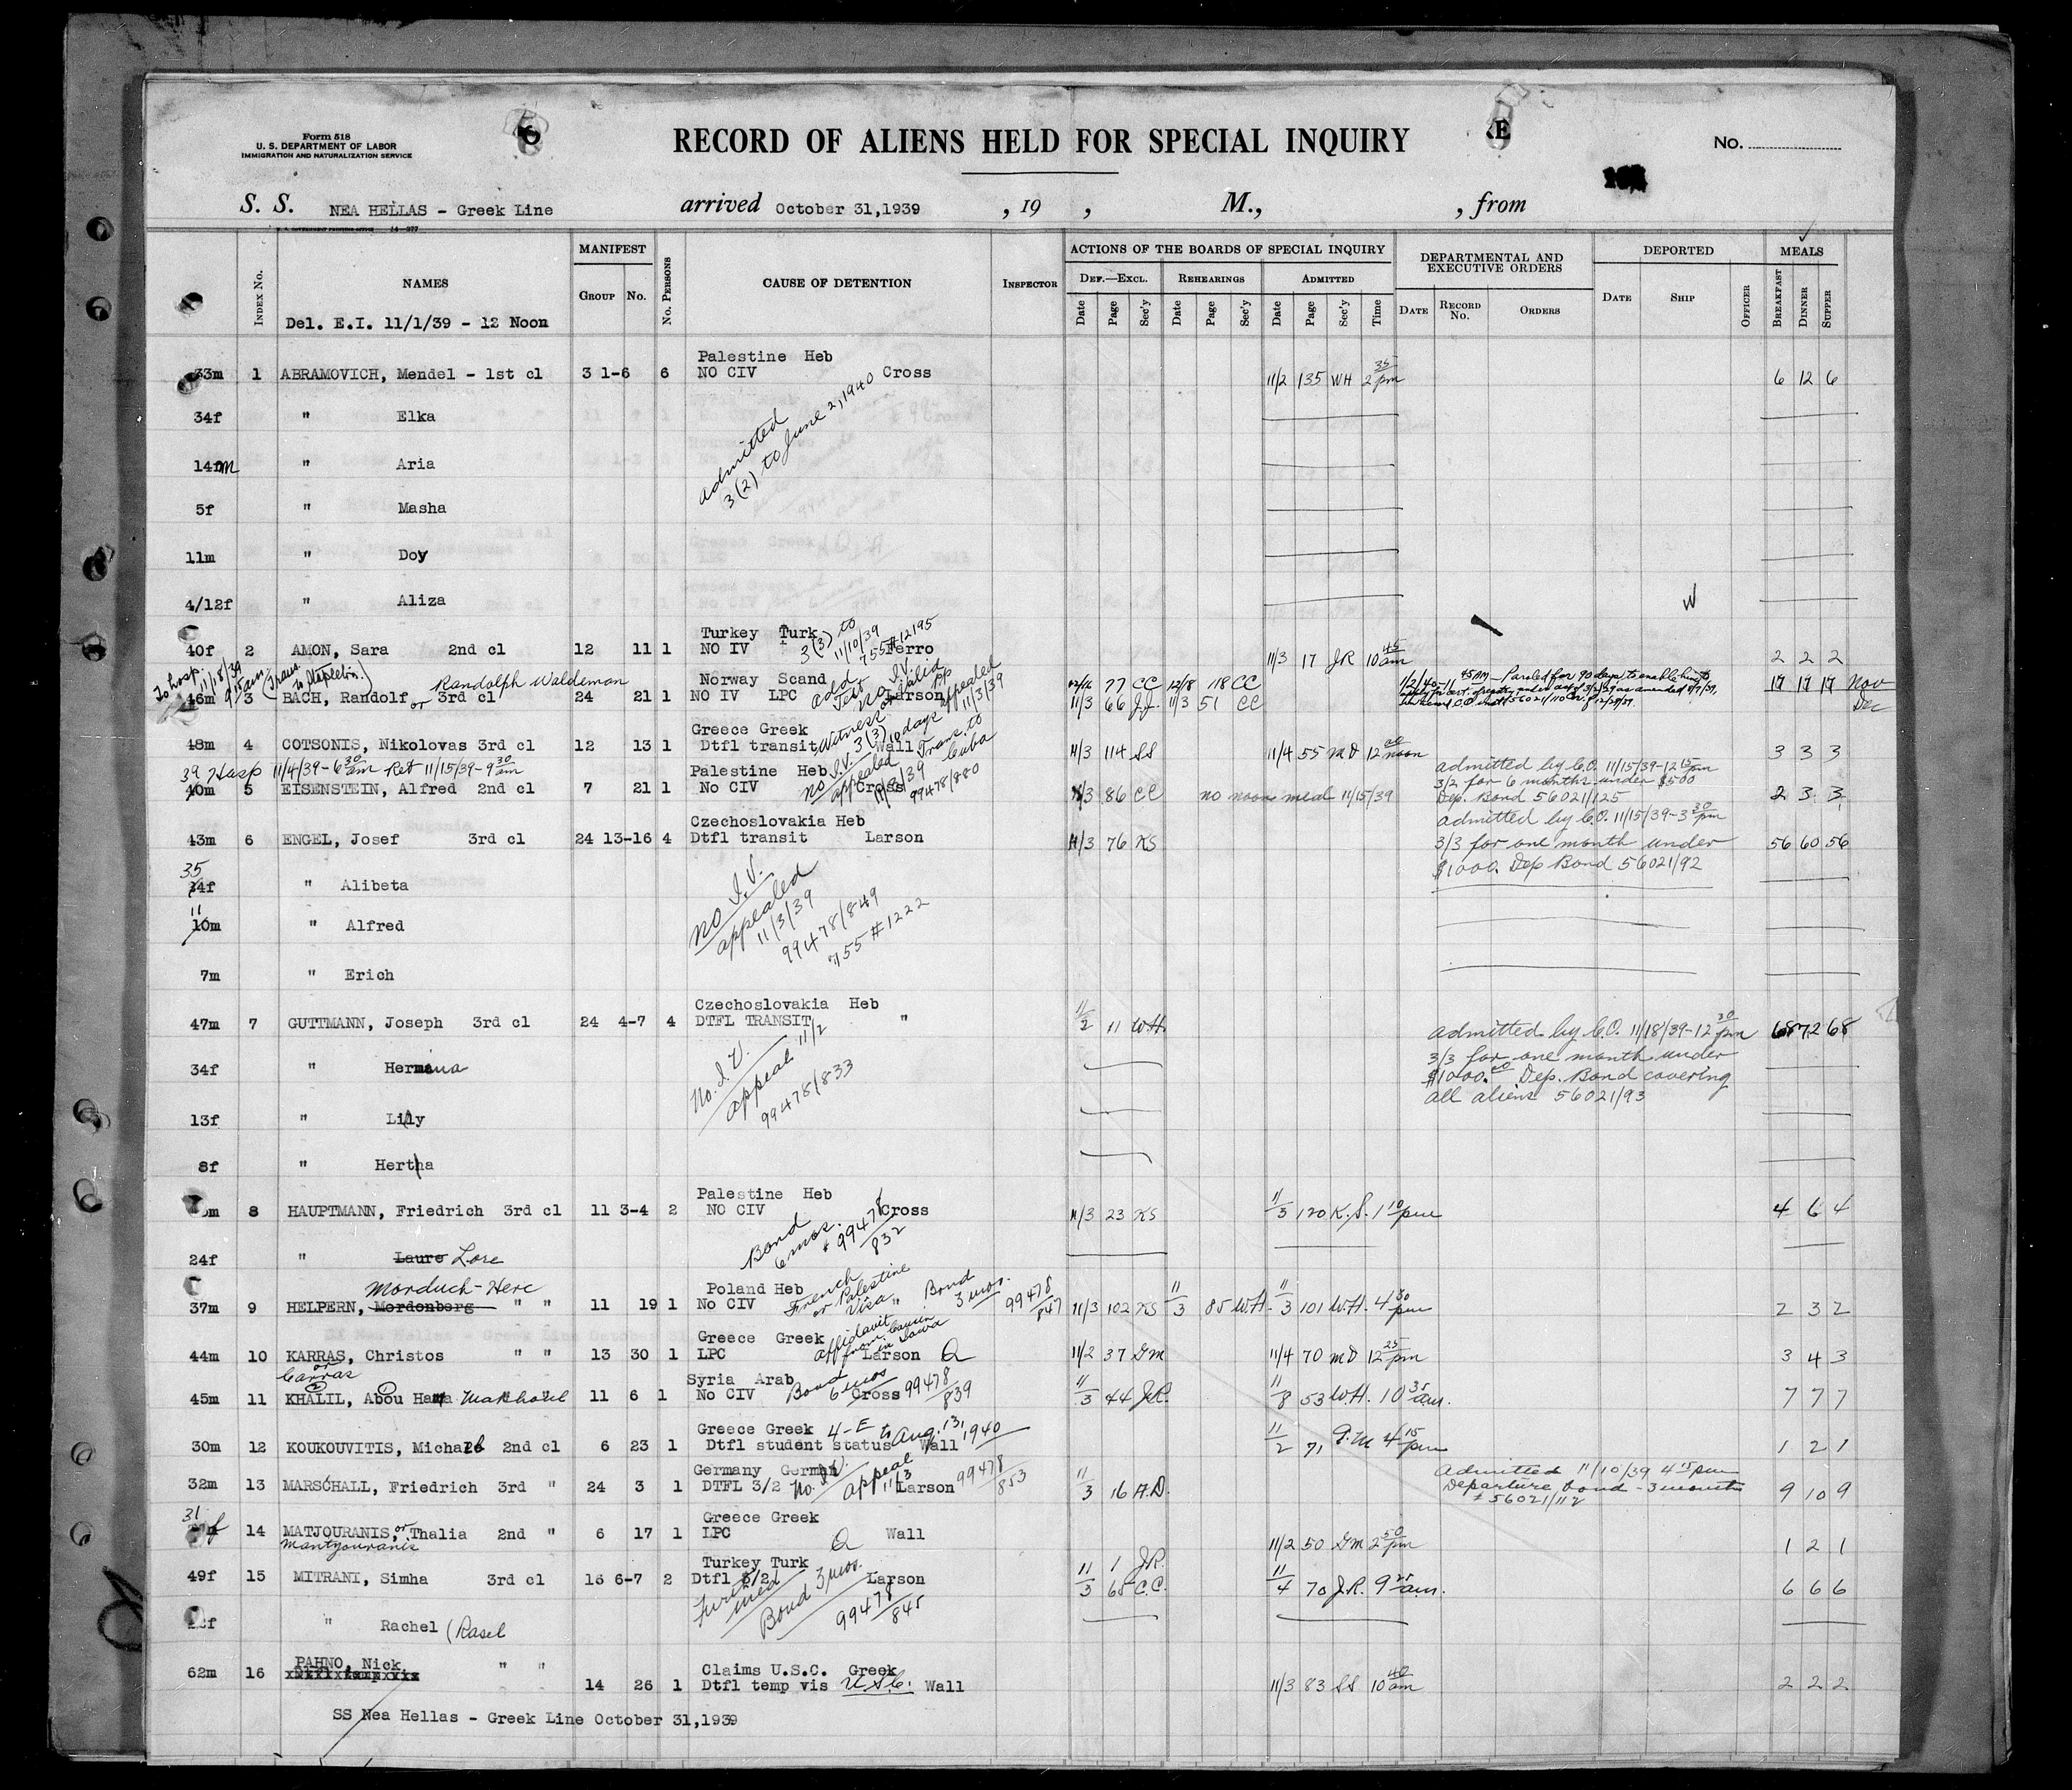 Form 518
U. S. DEPARTMENT OF LABOR
IMMIGRATION AND NATURALIZATION SERVICE
RECORD OF ALIENS HELD FOR SPECIAL INQUIRY
No.
S. S. NEA HELLAS - Greek Line arrived October 31,1939 , 19 , M., , from
Index No. NAMES MANIFEST Group No. No. Persons CAUSE OF DETENTION Inspector
ACTIONS OF THE BOARDS OF SPECIAL INQUIRY
Def.—Excl. Rehearings Admitted
Date Page Sec'y Date Page Sec'y Date Page Sec'y Time
DEPARTMENTAL AND EXECUTIVE ORDERS
Date Record No. Orders
DEPORTED
Date Ship Officer
MEALS
Breakfast Dinner Supper
Del. E.I. 11/1/39 - 12 Noon
Palestine Heb
33m 1 ABRAMOVICH, Mendel - 1st cl 3 1-6 6 NO CIV Cross 11/2 135 WH 2 35 pm 6 12 6
34f " Elka
Admitted
3(2) to June 2, 1940
14m " Aria
5f " Masha
11m " Doy
4/12f " Aliza
Turkey Turk
40f 2 AMON, Sara 2nd cl 12 11 1 NO IV Ferro 11/3 17 JR 10 45 am 2 2 2
3(3) to
11/10/39
755#12195
To hosp. 11/18/39
9 15 am (Trans. to Stapleton.)
Randolph Waldeman
Norway Scand
46m 3 BACH, Randolf or 3rd cl 24 21 1 NO IV LPC Larson
12/16 77 CC 12/18 118 CC
11/3 66 J.J. 11/3 51 CC
17 17 17 Nov
Dec
Greece Greek
48m 4 COTSONIS, Nikolovas 3rd cl 12 13 1 Dtfl transit Wall 11/3 114 SS 11/4 55 MD 12 00 noon 3 3 3
3(3) 10 days
Trans. to
Cuba
appealed
11/3/39
39 Hosp 11/4/39 - 6 30 am Ret 11/15/39 - 9 30 am
Palestine Heb
40m 5 EISENSTEIN, Alfred 2nd cl 7 21 1 No CIV Cross 11/3 86 CC no noon meal 11/15/39 2 3 3
no I.V.
appealed
11/3/39
99478/880
admitted by C.O. 11/15/39-12 15 pm
3/2 for 6 months under $500
Dep. Bond 56021/125
Czechoslovakia Heb
43m 6 ENGEL, Josef 3rd cl 24 13-16 4 Dtfl transit Larson 11/3 76 KS 56 60 56
admitted by C.O. 11/15/39-3 30 pm
3/3 for one month under
$1000. Dep Bond 56021/92
35
34f " Alibeta
no I.V.
appealed
11/3/39
99478/849
755#1222
11
10m " Alfred
7m " Erich
Czechoslovakia Heb
47m 7 GUTTMANN, Joseph 3rd cl 24 4-7 4 DTFL TRANSIT " 11/2 11 W.H. 68 72 68
admitted by C.O. 11/18/39-12 30 pm
3/3 for one month under
$1000.00 Dep. Bond covering
all aliens 56021/93
34f " Hermina
No. I.V.
appeal 11/2
99478/833
13f " Lily
8f " Hertha
Palestine Heb
8 HAUPTMANN, Friedrich 3rd cl 11 3-4 2 NO CIV Cross 11/3 23 KS 11/3 120 K.S. 1 10 pm 4 6 4
Bond
6 mos.
# 99478/832
24f " Laure Lore
Morduch-Herc
Poland Heb
37m 9 HELPERN, Mordonberg " " 11 19 1 No CIV " 11/3 102 KS 11/3 85 W.H. 11/3 101 W.H. 4 30 pm 2 3 2
French
or Palestine
Visa
Bond
3 mos.
99478/847
Greece Greek
44m 10 KARRAS, Christos " " 13 30 1 LPC Larson 11/2 37 DM 11/4 70 MD 12 25 pm 3 4 3
or
Carras
affidavit
from cousin
in Iowa
Syria Arab
45m 11 KHALIL, Abou Hama Makhoul " " 11 6 1 No CIV Cross 11/3 44 J.R. 11/8 53 W.H. 10 35 am. 7 7 7
Bond
6 mos
99478/839
Greece Greek 4-E to Aug. 13, 1940
30m 12 KOUKOUVITIS, Michael 2nd cl 6 23 1 Dtfl student status Wall 11/2 71 4 15 pm 1 2 1
Germany German
32m 13 MARSCHALL, Friedrich 3rd " 24 3 1 DTFL 3/2 Larson 11/3 16 A.D. 9 10 9
No. I.V.
appeal
11/3
99478/853
Admitted 11/10/39 4 15 pm
Departure bond - 3 months
# 56021/112
31
Greece Greek
14 MATJOURANIS, or Thalia 2nd " 6 17 1 LPC Wall 11/2 50 DM 2 50 pm 1 2 1
Mantyouranis
Turkey Turk
49f 15 MITRANI, Simha 3rd cl 16 6-7 2 Dtfl 3/2 Larson 11/3 1 J.R. 65 C.C. 11/4 70 J.R. 9 25 am. 6 6 6
Bond 3 mos.
99478/845
" Rachel (Rasel
PAHNO, Nick " "
62m 16 14 26 1 Claims U.S.C. Greek
Dtfl temp vis U.S.C. Wall 11/3 83 SS 10 40 am 2 2 2
SS Nea Hellas - Greek Line October 31,1939